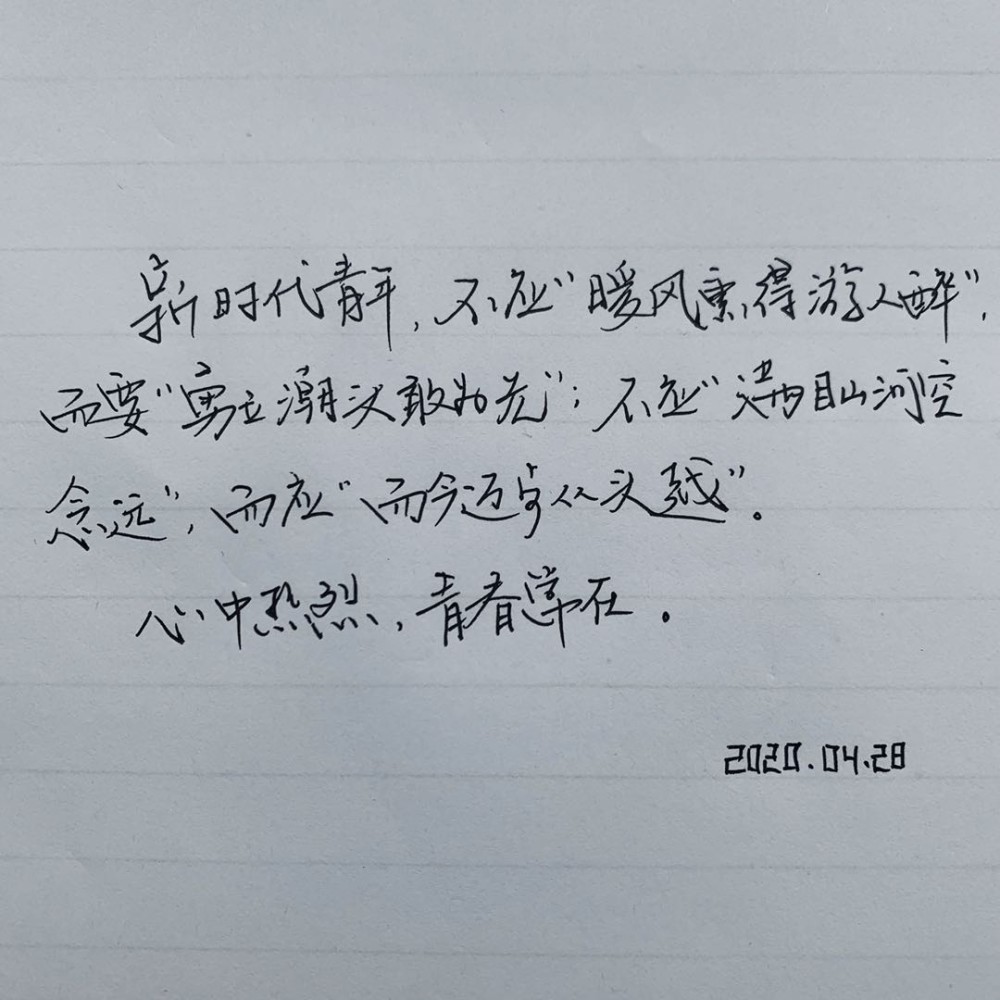 新时代青年，不应“暖风熏得游人醉”，
而要“勇立潮头敢为先”；不应“满目山河空
念远”，而应“而今迈步从头越”。
心中热烈，青春常在。
2020.04.28